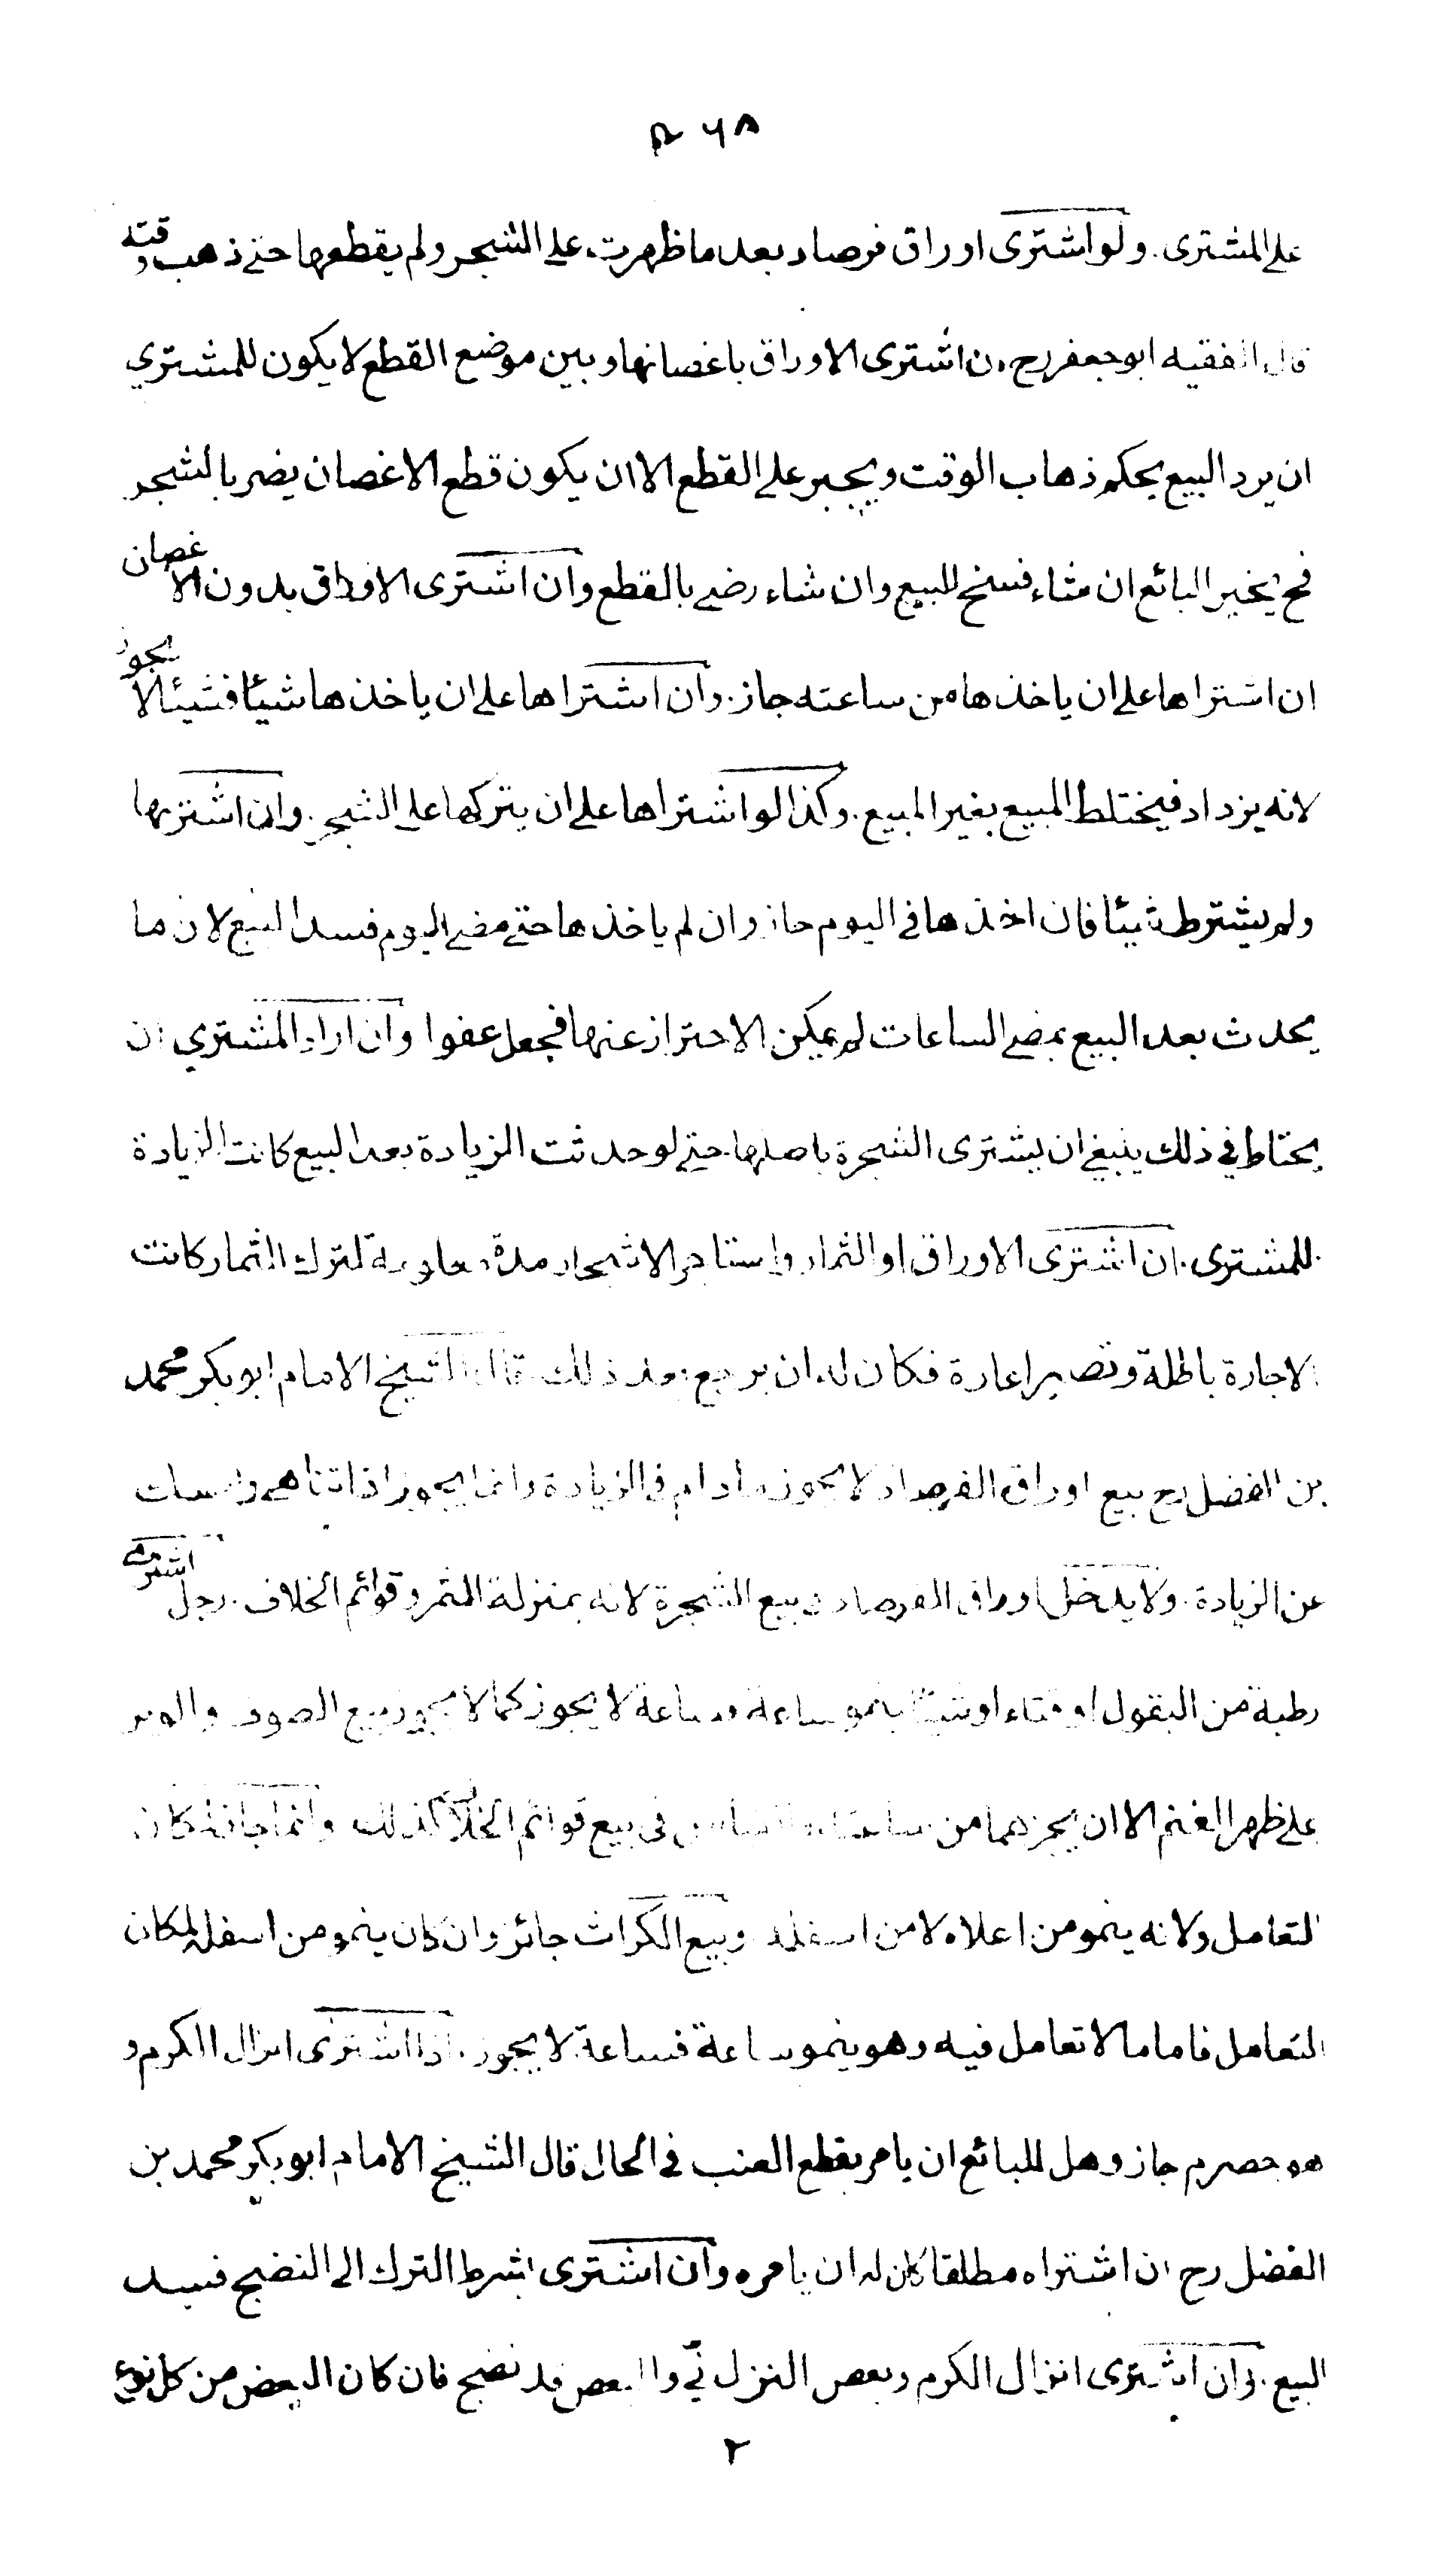 ٥٦٨
على المشترى . ولو اشترى اوراق فرصاد بعد ما ظهرت على الشجر ولم يقطعها حتى ذهب وقته
قال الفقيه ابو جعفر رح ان اشترى الاوراق باغصانها وبين موضع القطع لا يكون للمشتري
ان يرد البيع بحكم ذهاب الوقت ويجبر على القطع الا ان يكون قطع الاغصان يضر بالشجر
فح يخير البائع ان شاء فسخ البيع وان شاء رضى بالقطع وان اشترى الاوراق بدون الاغصان
ان اشتراها على ان ياخذها من ساعته جاز . وان اشتراها على ان ياخذها شيئا فشيئا لا يجوز
لانه يزداد فيختلط المبيع بغير المبيع . وكذا لو اشتراها على ان يتركها على الشجر . وان اشتريها
ولم يشترط شيئا فان اخذها فى اليوم جاز وان لم ياخذها حتى مضى اليوم فسد البيع لان ما
يحدث بعد البيع بمضى الساعات لم يمكن الاحتراز عنها فجعل عفوا وان اراد المشتري ان
يحتاط في ذلك ينبغى ان يشترى الشجرة باصلها حتى لو حدثت الزيادة بعد البيع كانت الزيادة
للمشترى . ان اشترى الاوراق او الثمار واستاجر الاشجار مدة معلومة لترك الثمار كانت
الاجارة باطلة وتصير اعارة فكان له ان يرجع بعد ذلك قال الشيخ الامام ابو بكر محمد
بن الفضل رح بيع اوراق الفرصاد لا يجوز ما دام فى الزيادة وانما يجوز اذا تناهى وامسات
عن الزيادة . ولا يدخل اوراق الفرصاد فى بيع الشجرة لانه بمنزلة الثمر وقوائم الخلاف . رجل اشترى
رطبة من البقول او قثاء او شيئا ينمو ساعة فساعة لا يجوز كما لا يجوز بيع الصوف والوبر
على ظهر الغنم الا ان يجزهما من ساعته فى بيع قوائم الخلاف كذلك وانما جاز لمكان
التعامل ولانه ينمو من اعلاه لا من اسفله وبيع الكراث جائز وان كان ينمو من اسفله لمكان
التعامل فاما ما لا تعامل فيه وهو ينمو ساعة فساعة لا يجوز . اذا اشترى انزال الكرم و
هو حصرم جاز وهل للبائع ان يامر بقطع العنب فى الحال قال الشيخ الامام ابو بكر محمد بن
الفضل رح ان اشتراه مطلقا كان له ان يامره وان اشترى بشرط الترك الى النضج فسد
البيع . وان اشترى انزال الكرم وبعض النزل نى والبعض قد نضج فان كان البعض من كل نوع
٢